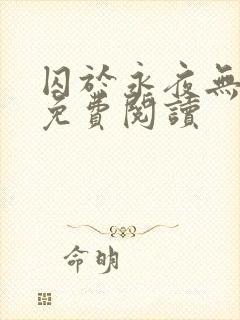 囚於永夜無
免費閱讀
命明